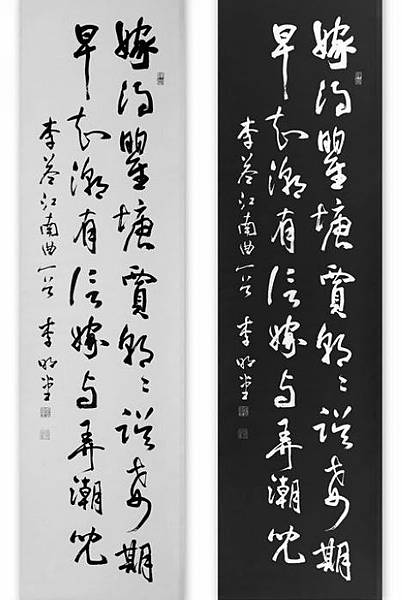 嫁得瞿塘賈朝々誤妾期
早知潮有信嫁与弄潮兒
李益江南曲一首 李
嫁得瞿塘賈朝々誤妾期
早知潮有信嫁与弄潮兒
李益江南曲一首 李